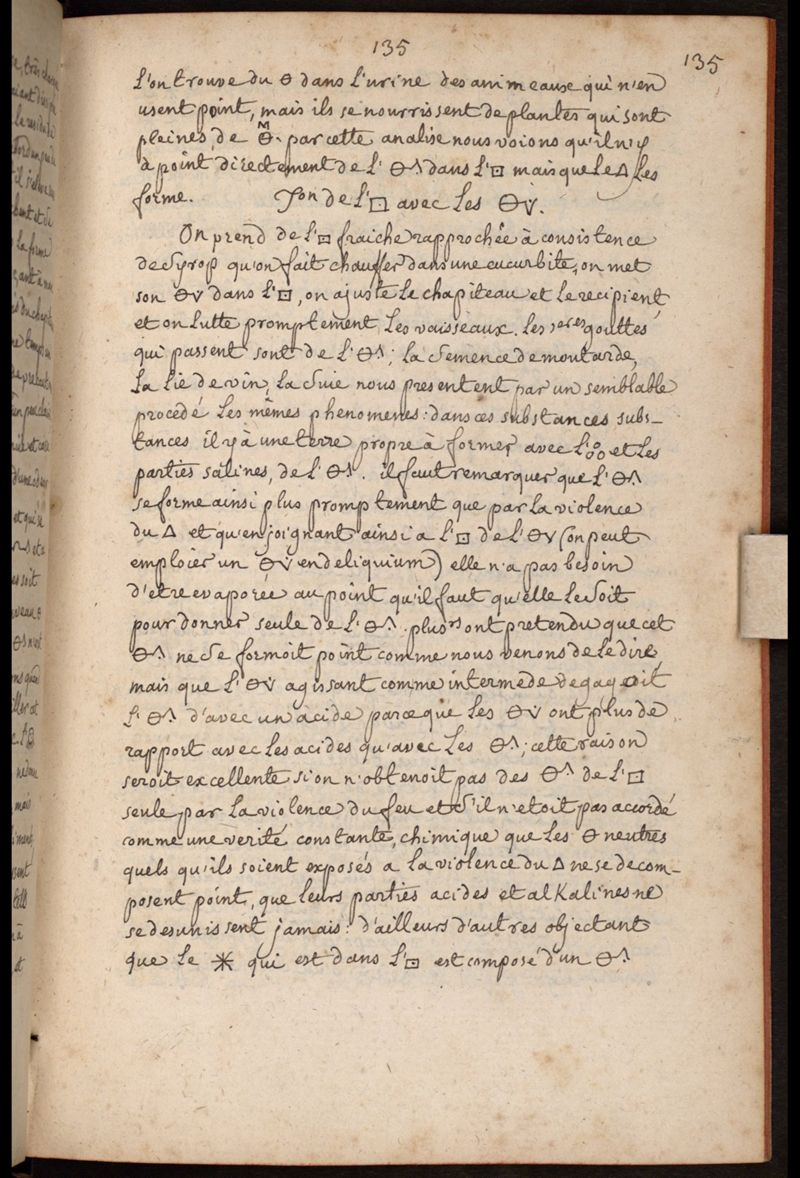 135
135
L'on trouve du 🜔 dans L'urine des animeaux qui n'en
usent point, mais ils se nourrissent de plantes qui sont
pleines, de 🜔ᴹ. par cette analise nous voions qu'il n'y
a point directement de L' 🜔^ dans L'⊡ mais que Le △ Les
forme. Jon de L'⊡ avec Les 🜔v.
On prend de L'⊡ fraiche rapprochée à consistence
de Syrop qu'on fait chauffer dans une cucurbite, on met
son 🜔v dans L'⊡, on ajuste Le chapiteau et Le recipient,
et on Lutte promptement Les vaisseaux. Les 1eres gouttes
qui passent sont de L'🜔^; La Semence de moutarde,
La Lie de vin, La Suie nous presentent par un semblable
procédé Les mêmes phenomenes: dans ces substances subs-
tances il y à une terre propre à former avec L'⁰₀⁰ et Les
parties salines, de L'🜔^. il faut remarquer que L'🜔^
se forme ainsi plus promptement que par La violence
du △ et qu'en joignant ainsi a L'⊡ de L'🜔v (on peut
emploier un 🜔v en deliquium) elle n'a pas besoin
d'etre evaporée au point qu'il faut qu'elle Le Soit
pour donner seule de L'🜔^. plusrs ont pretendu que cet
🜔^ ne Se formoit point comme nous venons de Le dire,
mais que L'🜔v agissant comme intermede degageoit
L'🜔^ d'avec un acide parce que Les 🜔v ont plus de
rapport avec Les acides qu'avec Les 🜔^; cette raison
seroit excellente si on n'obtenoit pas des 🜔^ de L'⊡
seule par La violence du feu et S'il n'etoit pas accordé
comme une verité constante, chimique que Les 🜔 neutres
quels qu'ils soient exposés a La violence du △ ne se decom-
posent point, que Leurs parties acides et alKalines ne
se desunissent jamais: d'ailleurs d'autres objectant
que Le ✳ qui est dans L'⊡ est composé d'un 🜔^